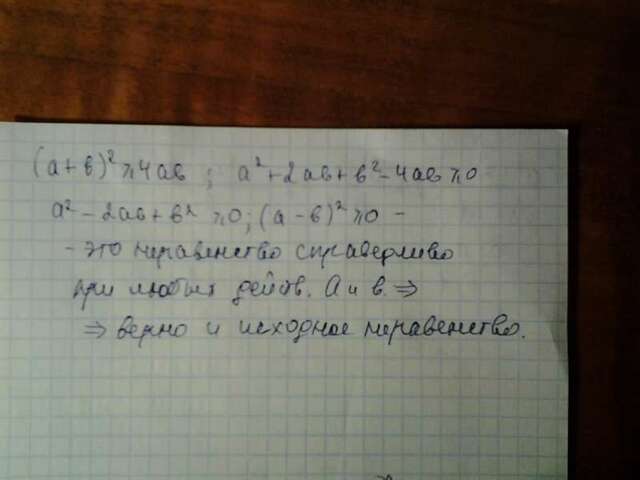 (а+в)²≥4ав ; а²+2ав+в²-4ав≥0
а²-2ав+в²≥0;(а-в)²≥0 -
- это неравенство справедливо
при любых действ. а и в. ⇒
⇒ верно и исходное неравенство.